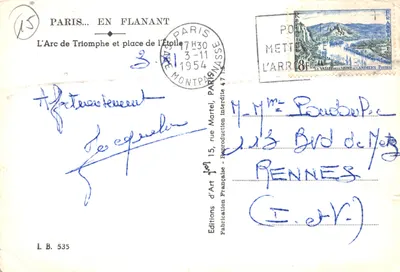 15
PARIS... EN FLANANT
L'Arc de Triomphe et place de l'Étoile
3.
Affectueusement
Jacqueline
I. B. 535
PARIS
17H30
3-11
1954
MONTPARNASSE
METTE
L'ARR
8F
Editions d'Art 15, rue Martel, PARIS
Fabrication Française - Reproduction interdite
M-Mme
113 Bvd de Metz
RENNES
(I. et V.)